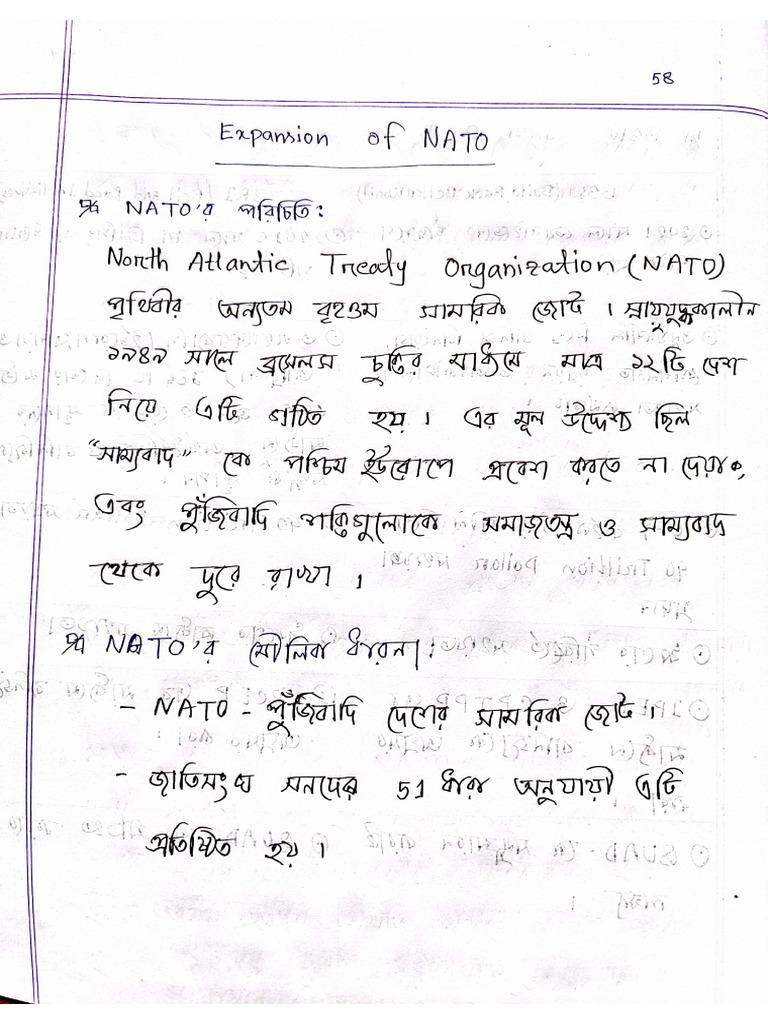 58
Expansion of NATO
NATO'র পরিচিতি:
North Atlantic Treaty Organization (NATO)
পৃথিবীর অন্যতম বৃহত্তম সামরিক জোট। স্নায়ুযুদ্ধকালীন
১৯৪৯ সালে ব্রাসেলস চুক্তির মাধ্যমে মাত্র ১২টি দেশ
নিয়ে এটি গঠিত হয়। এর মূল উদ্দেশ্য ছিল
"সাম্যবাদ" কে পশ্চিম ইউরোপে প্রবেশ করতে না দেয়া,
এবং পুঁজিবাদি শক্তিগুলোকে সমাজতন্ত্র ও সাম্যবাদ
থেকে দুরে রাখা।
NATO'র মৌলিক ধারনা:
- NATO - পুঁজিবাদি দেশের সামরিক জোট।
- জাতিসংঘ সনদের 51 ধারা অনুযায়ী এটি
প্রতিষ্ঠিত হয়।